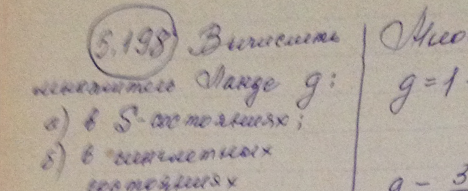 5.198 Вычислить
множитель Ланде g:
а) в S-состояниях;
б) в синглетных
состояниях
g = 1
g = 3